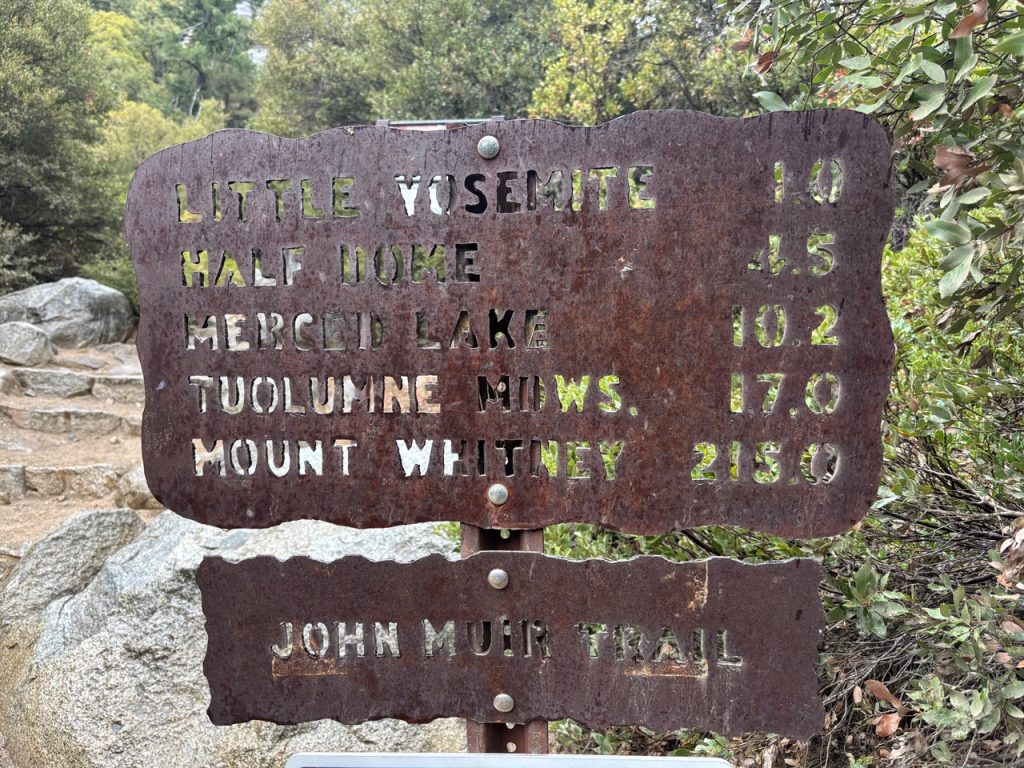 LITTLE YOSEMITE 1.0
HALF DOME 4.5
MERCED LAKE 10.2
TUOLUMNE MDWS. 17.0
MOUNT WHITNEY 215.0
JOHN MUIR TRAIL